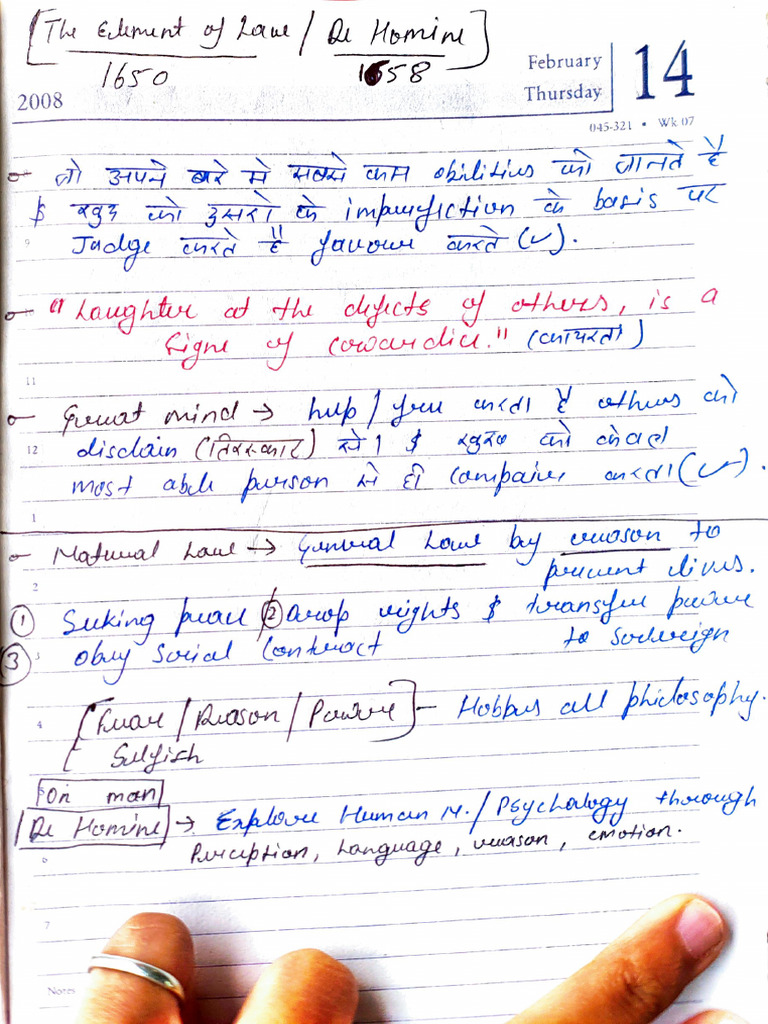 [The Element of Law / De Homine]
1650 1658
February
Thursday
14
2008
045-321 • Wk 07
जो अपने बारे मे सबसे कम abilities को जानते है
& खुद को दुसरो के imperfection के basis पर
Judge करते है favour करते (✓).
9
"Laughter at the defects of others, is a
Signe of cowardice." (कायरता)
11
Great mind → help / free करता है others को
12 disdain (तिरस्कार) से। & खुद को केवल
most able person से ही compaire करता (✓).
1
Natural Law → General Law by reason to
prevent lives.
2
① Seeking peace ② drop rights & transfer power
③ obey Social Contract to sovereign
3
4 [Fear / Reason / Power] - Hobbes all philosophy.
Selfish
5 On man
[De Homine] → Explore Human N. / Psychology through
Perception, Language, reason, emotion.
6
7
Notes